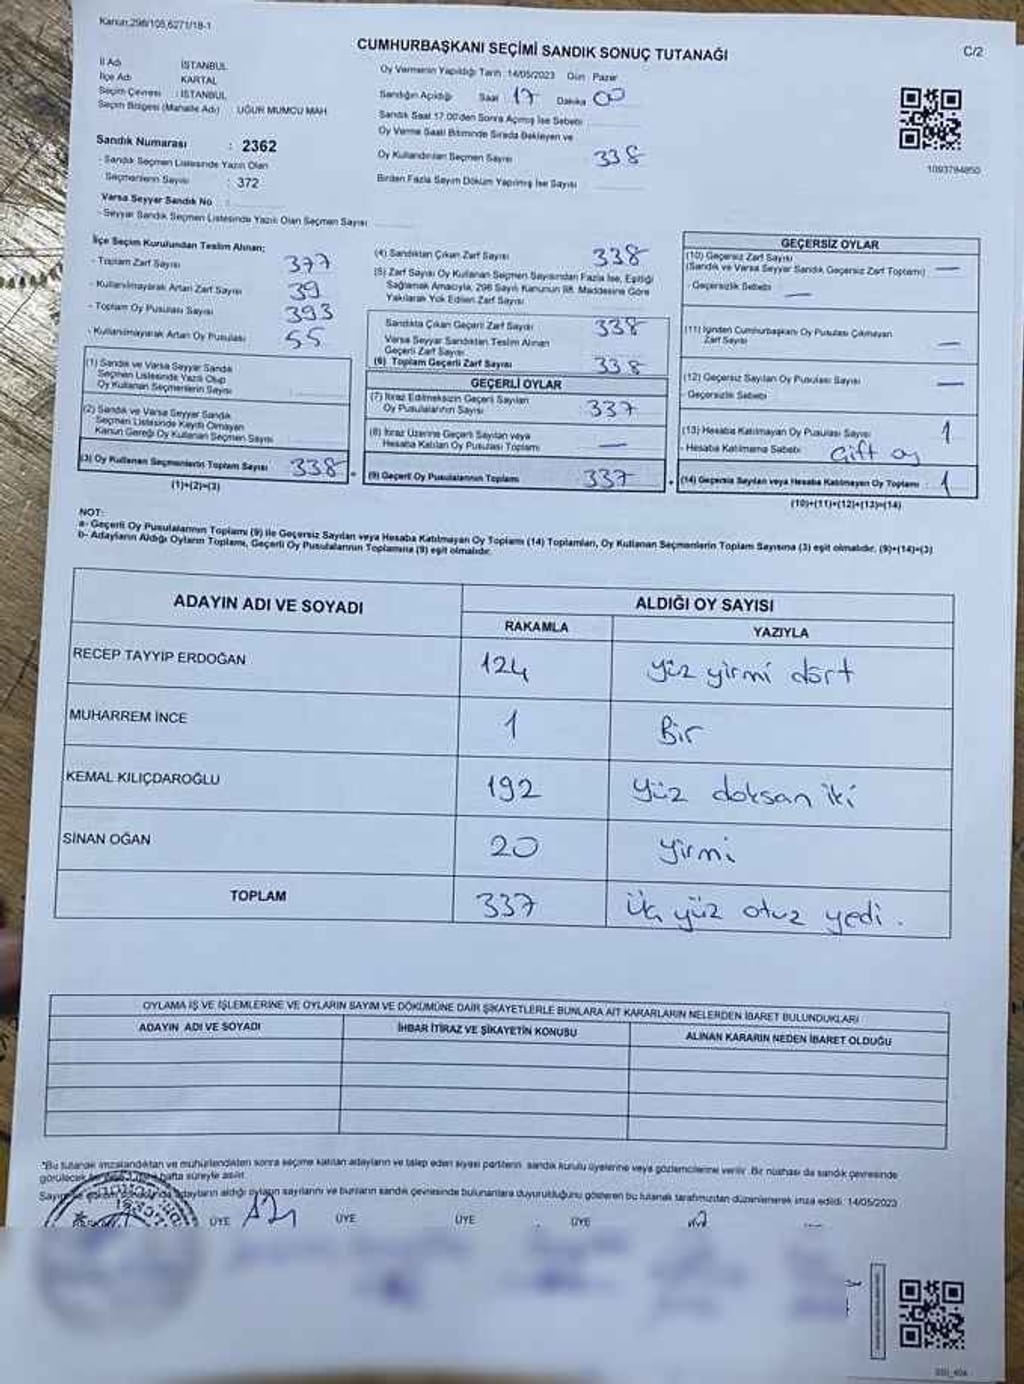 Kanun:298/105,6271/18-1
CUMHURBAŞKANI SEÇİMİ SANDIK SONUÇ TUTANAĞI
C/2
İl Adı İSTANBUL
İlçe Adı KARTAL
Seçim Çevresi : İSTANBUL
Seçim Bölgesi (Mahalle Adı) : UĞUR MUMCU MAH
Sandık Numarası : 2362
- Sandık Seçmen Listesinde Yazılı Olan
Seçmenlerin Sayısı : 372
Varsa Seyyar Sandık No :
- Seyyar Sandık Seçmen Listesinde Yazılı Olan Seçmen Sayısı
Oy Vermenin Yapıldığı Tarih : 14/05/2023 Gün : Pazar
Sandığın Açıldığı Saat 17 Dakika 00
Sandık Saat 17.00'den Sonra Açılmış İse Sebebi
Oy Verme Saati Bitiminde Sırada Bekleyen ve
Oy Kullandırılan Seçmen Sayısı 338
Birden Fazla Sayım Döküm Yapılmış İse Sayısı
1093784850
İlçe Seçim Kurulundan Teslim Alınan;
- Toplam Zarf Sayısı 377
- Kullanılmayarak Artan Zarf Sayısı 39
- Toplam Oy Pusulası Sayısı 393
- Kullanılmayarak Artan Oy Pusulası 55
(1) Sandık ve Varsa Seyyar Sandık
Seçmen Listesinde Yazılı Olup
Oy Kullanan Seçmenlerin Sayısı
(2) Sandık ve Varsa Seyyar Sandık
Seçmen Listesinde Kayıtlı Olmayan
Kanun Gereği Oy Kullanan Seçmen Sayısı
(3) Oy Kullanan Seçmenlerin Toplam Sayısı 338
(1)+(2)=(3)
(4) Sandıktan Çıkan Zarf Sayısı 338
(5) Zarf Sayısı Oy Kullanan Seçmen Sayısından Fazla İse, Eşitliği
Sağlamak Amacıyla, 298 Sayılı Kanunun 98. Maddesine Göre
Yakılarak Yok Edilen Zarf Sayısı
Sandıkta Çıkan Geçerli Zarf Sayısı 338
Varsa Seyyar Sandıktan Teslim Alınan
Geçerli Zarf Sayısı
(6) Toplam Geçerli Zarf Sayısı 338
GEÇERLİ OYLAR
(7) İtiraz Edilmeksizin Geçerli Sayılan
Oy Pusulalarının Sayısı 337
(8) İtiraz Üzerine Geçerli Sayılan veya
Hesaba Katılan Oy Pusulası Toplamı —
(9) Geçerli Oy Pusulalarının Toplamı 337
GEÇERSİZ OYLAR
(10) Geçersiz Zarf Sayısı
(Sandık ve Varsa Seyyar Sandık Geçersiz Zarf Toplamı) —
- Geçersizlik Sebebi —
(11) İçinden Cumhurbaşkanı Oy Pusulası Çıkmayan
Zarf Sayısı —
(12) Geçersiz Sayılan Oy Pusulası Sayısı —
- Geçersizlik Sebebi
(13) Hesaba Katılmayan Oy Pusulası Sayısı 1
- Hesaba Katılmama Sebebi Çift oy
(14) Geçersiz Sayılan veya Hesaba Katılmayan Oy Toplamı 1
(10)+(11)+(12)+(13)=(14)
NOT:
a- Geçerli Oy Pusulalarının Toplamı (9) ile Geçersiz Sayılan veya Hesaba Katılmayan Oy Toplamı (14) Toplamları, Oy Kullanan Seçmenlerin Toplam Sayısına (3) eşit olmalıdır. (9)+(14)=(3)
b- Adayların Aldığı Oyların Toplamı, Geçerli Oy Pusulalarının Toplamına (9) eşit olmalıdır.
ADAYIN ADI VE SOYADI
ALDIĞI OY SAYISI
RAKAMLA YAZIYLA
RECEP TAYYİP ERDOĞAN 124 yüz yirmi dört
MUHARREM İNCE 1 Bir
KEMAL KILIÇDAROĞLU 192 yüz doksan iki
SİNAN OĞAN 20 yirmi
TOPLAM 337 üç yüz otuz yedi.
OYLAMA İŞ VE İŞLEMLERİNE VE OYLARIN SAYIM VE DÖKÜMÜNE DAİR ŞİKAYETLERLE BUNLARA AİT KARARLARIN NELERDEN İBARET BULUNDUKLARI
ADAYIN ADI VE SOYADI İHBAR İTİRAZ VE ŞİKAYETİN KONUSU ALINAN KARARIN NEDEN İBARET OLDUĞU
*Bu tutanak imzalandıktan ve mühürlendikten sonra seçime katılan adayların ve talep eden siyasi partilerin sandık kurulu üyelerine veya gözlemcilerine verilir. Bir nüshası da sandık çevresinde
görülecek hafta süreyle asılır.
adayların aldığı oyların sayılarını ve bunların sandık çevresinde bulunanlara duyurulduğunu gösteren bu tutanak tarafımızdan düzenlenerek imza edildi. 14/05/2023
ÜYE ÜYE ÜYE ÜYE